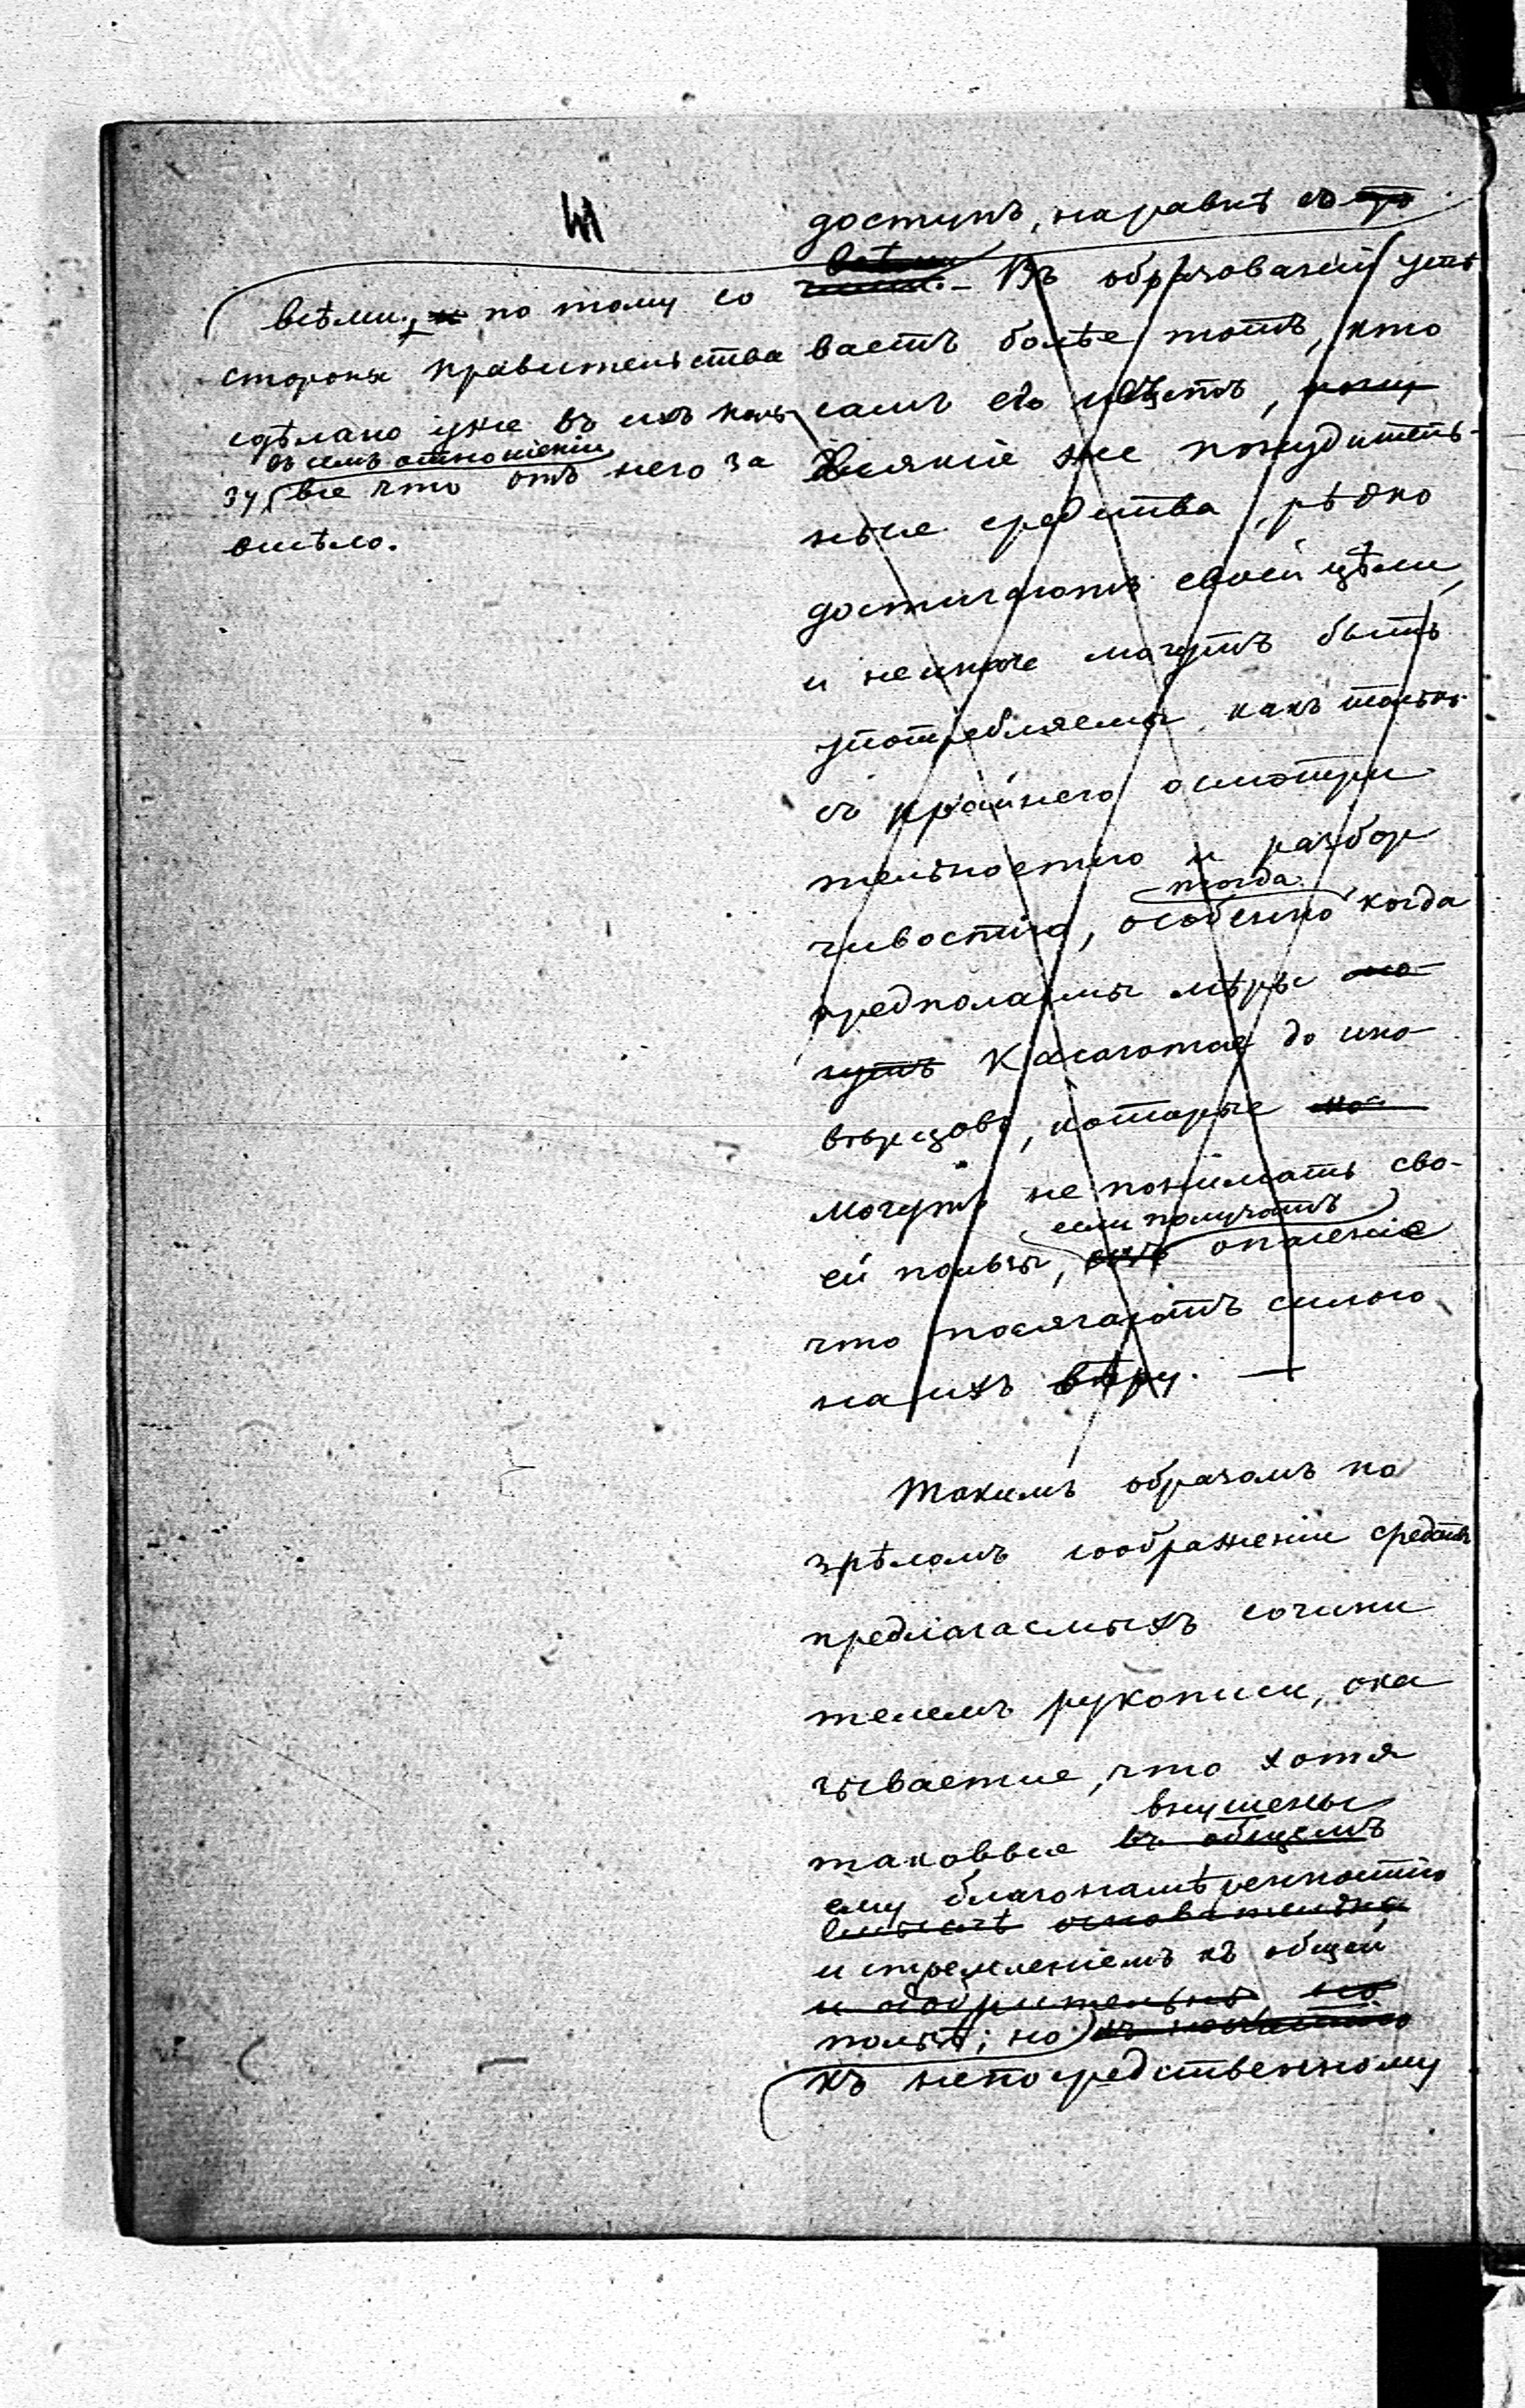 доступъ, наравнѣ съ
всѣми; и по тому со
стороны правительства
сдѣлано уже въ ихъ поль
въ семъ отношеніи
зу все что отъ него за
висѣло.
всѣми
Въ образованіи успѣ
ваетъ болѣе тотъ, кто
самъ его ищетъ,
всякіе же понудитель-
ные средства, рѣдко
достигаютъ своей цѣли,
и неиначе могутъ быть
употребляемы, какъ только
съ крайнею осмотри
тельностію и разбор
тогда
чивостію, особенно когда
предполагаемы мѣры мо
гутъ касаются до ино
вѣрцовъ, которые
могутъ не понимать сво-
если получатъ
ей пользы, опасеніе
что посягаютъ силою
на ихъ вѣру. —
Такимъ образомъ по
зрѣломъ соображеніи средствъ
предлагаемыхъ сочини
телемъ рукописи, ока
зывается, что хотя
внушены
таковые въ общемъ
ему благонамѣренностію
смыслѣ основательны
и стремленіемъ къ общей
и одобрительны но
пользѣ; но
къ непосредственному